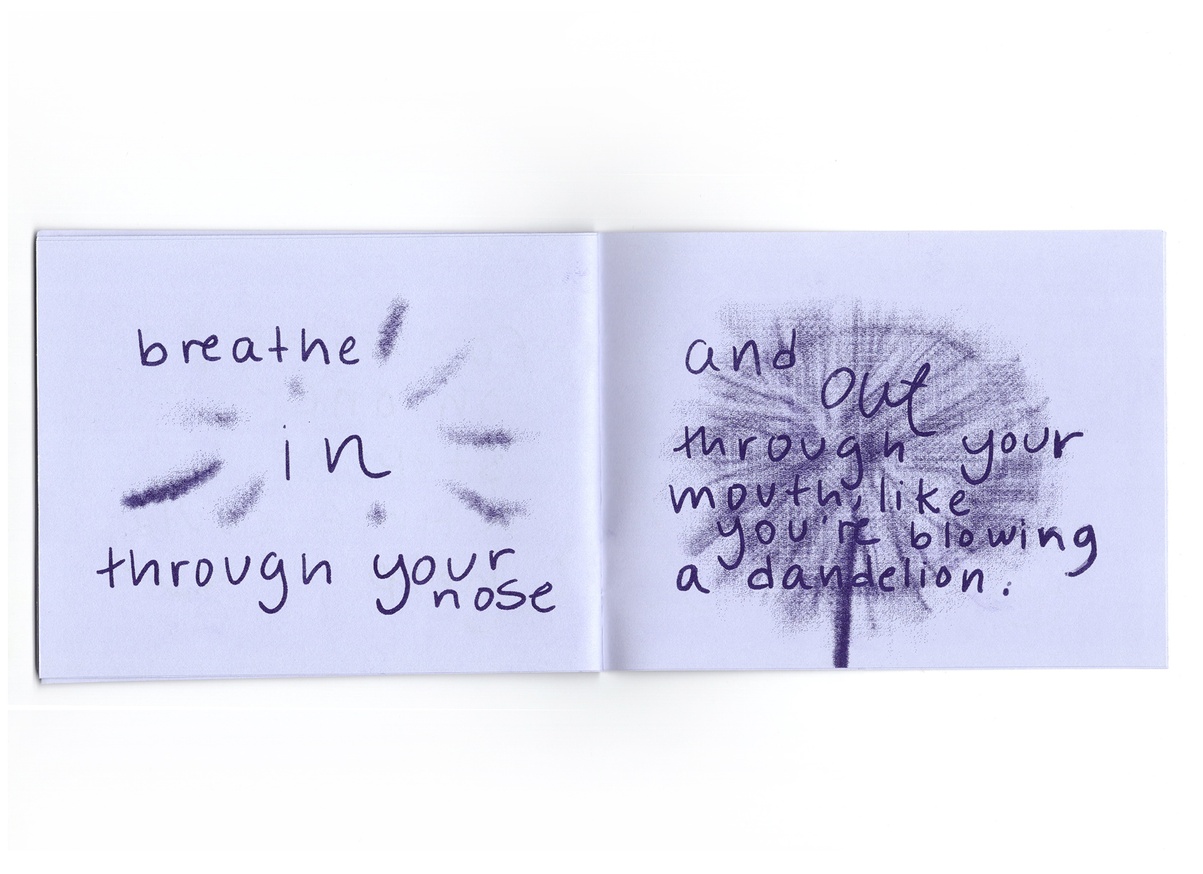 breathe
in
through your
nose
and
out
through your
mouth, like
you're blowing
a dandelion.